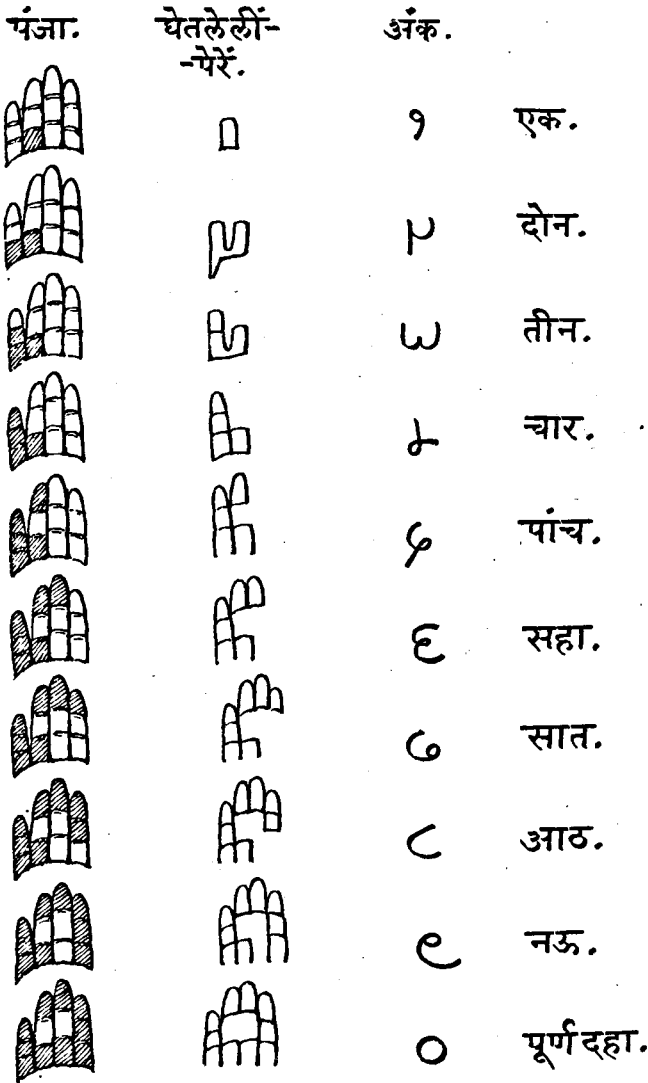 पंजा. घेतलेलीं- अंक.
-पेरें.
१ एक.
२ दोन.
३ तीन.
४ चार.
५ पांच.
६ सहा.
७ सात.
८ आठ.
९ नऊ.
० पूर्ण दहा.